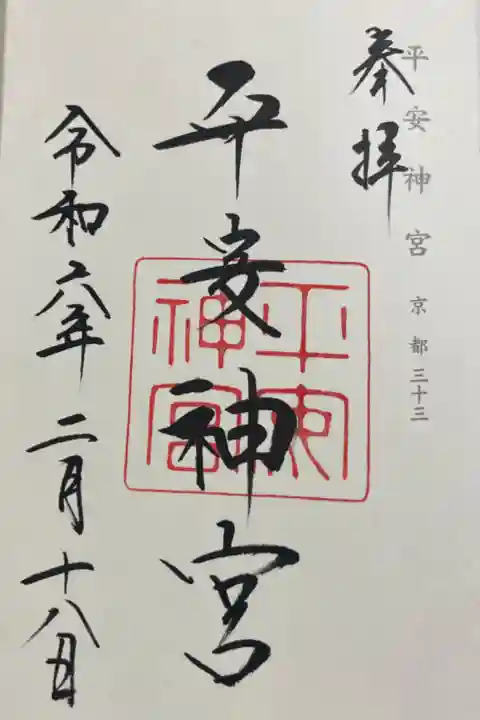 奉拝
平安神宮 京都三十三
平安神宮
平安
神宮
令和六年二月十八日